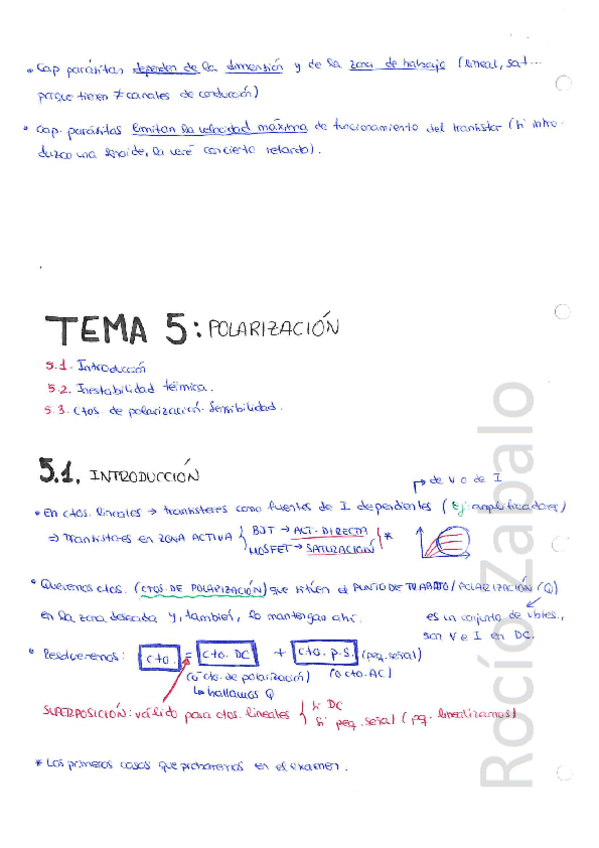 • Cap parásitas dependen de la dimensión y de la zona de trabajo (lineal, sat...
porque tienen ≠ canales de conducción)
• Cap. parásitas limitan la velocidad máxima de funcionamiento del transistor (si intro-
duzco una senoide, la veré con cierto retardo).
TEMA 5: POLARIZACIÓN
5.1. Introducción
5.2. Inestabilidad térmica.
5.3. Ctos de polarización. Sensibilidad.
5.1. INTRODUCCIÓN
de V o de I
• En ctos. lineales → transistores como fuentes de I dependientes (Ej: amplificadores)
⇒ Transistores en ZONA ACTIVA { BJT → ACT. DIRECTA
MOSFET → SATURACIÓN } *
• Queremos ctos. (CTOS. DE POLARIZACIÓN) que sitúen el PUNTO DE TRABAJO/POLARIZACIÓN (Q)
en la zona deseada y, también, lo mantengan ahí.
es un conjunto de vbles.,
son V e I en DC.
• Resolveremos: cto. = cto. DC + cto. p.s. (peq. señal)
(ó cto. de polarización) (ó cto. AC)
↳ hallamos Q
SUPERPOSICIÓN: válido para ctos. lineales { si DC
si peq. señal (pq. linealizamos)
* Los primeros casos que probaremos en el examen.
Rocío Zabalo